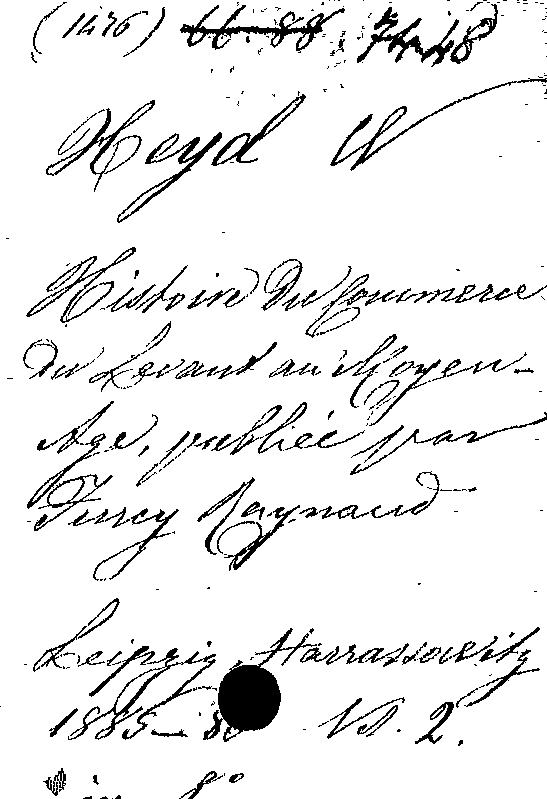 (1476) 66.88. 74.48
Heyd W
Histoire du Commerce
du Levant au Moyen-
Age, publiée par
Furcy Raynaud
Leipzig, Harrassowitz
1885- Vol. 2.
in 8°